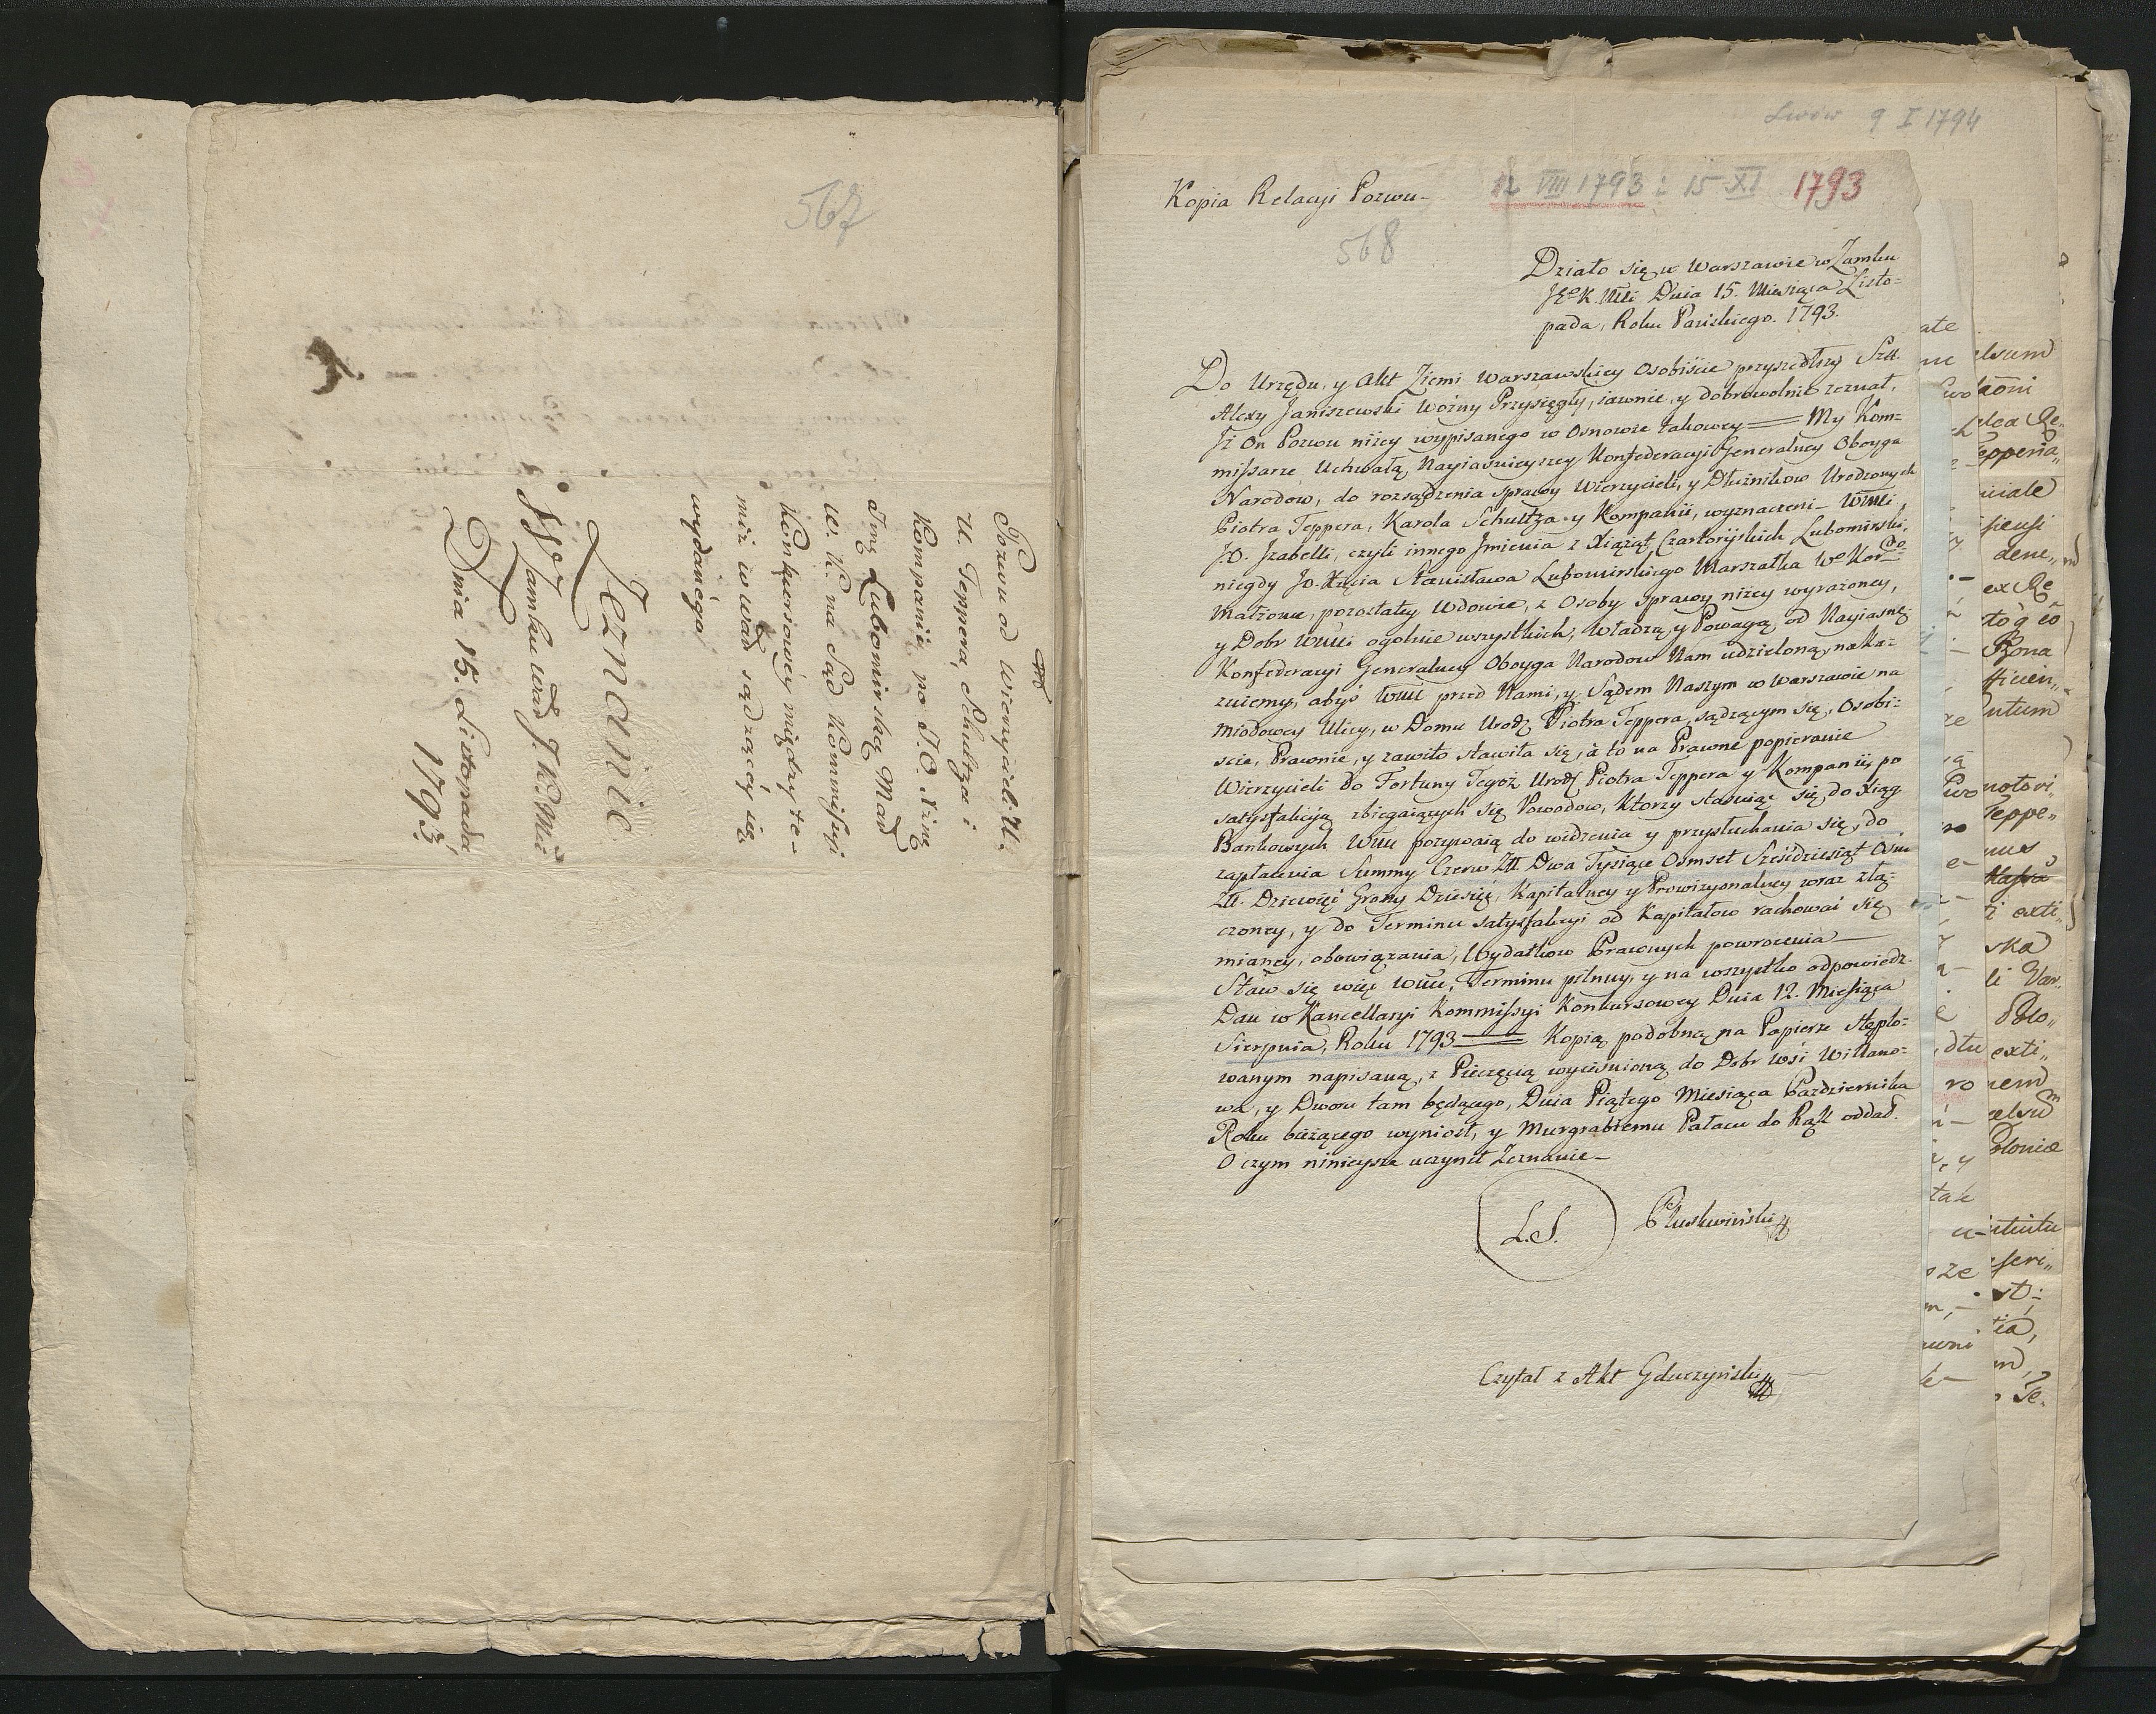 567
Pozwu od Wierzycieli U.
U. Teppera, Schultza i
Kompanii po J.O. Xżnę
Jmę Lubomirską Mar
W. K. na Sąd Kommissyi
Konkursowéy między te-
miż w War sądzącéy się
wydanégo
Zeznanie
W Zamku War J. K. Mci
Dnia 15. Listopada
1793
Lwów 9 I 1794
Kopia Relacyi Pozwu-
12 VIII 1793 i 15 XI 1793
568
Działo się w Warszawie w Zamku
JEo K. Mci Dnia 15. Miesiąca Listo=
pada, Roku Pańskiego. 1793.
Do Urzędu, y Akt Ziemi Warszawskiey Osobiście przyszedłszy Szl.
Alexy Janiszewski Woźny Przysięgły, iawnie, y dobrowolnie zeznał,
Jż On Pozwu niżey wypisanego w Osnowie takowey — My Kom=
missarze Uchwałą, Nayiaśnieyszey Konfederacyi Generalney Oboyga
Narodow, do rozsądzenia sprawy Wierzycieli, y Dłużnikow Urodzonych
Piotra Teppera, Karola Schultza y Kompanii, wyznaczeni - WMci
JO. Jzabelli, czyli innego Jmienia z Xiążąt Czartoryskich Lubomirski,
niegdy JO. Xcia Stanisława Lubomirskiego Marszałka We Kordo
Małżonce, pozostałey Wdowie, z Osoby sprawy niżey wyrażoney,
y Dobr WMci ogolnie wszystkich, Władzą y Powagą od Nayiasney
Konfederacyi Generalney Oboyga Narodow Nam udzieloną, naka=
zuiemy, abyś WMć przed Nami, y Sądem Naszym w Warszawie na
Miodowey Ulicy, w Domu Urodz Piotra Teppera, sądzącym się, Osobi=
ście, Prawnie, y zawito stawiła się, á to na Prawne popieranie
Wierzycieli do Fortuny Tegoż Urodz Piotra Teppera y Kompanii, po
satysfakcyą zbiegaiących się Powodow, ktorzy stosuiąc się do Xiąg
Bankowych WMć pozywaią do widzenia y przysłuchania się, do
zapłacenia Summy Czerw. Złł Dwa Tysiące Osmset Sześćdziesiąt Osm
Złł. Dziewięć Groszy Dziesięć, Kapitalney y Prowizyonalney wraz złą=
czoney, y do Terminu satysfakcyi od Kapitałow rachować się
mianey, obowiązania, Wydatkow Prawnych powrocenia —
Staw się więc WMć, Terminu pilnuy, y na wszystko odpowiedz-
Dan w Kancellaryi Kommissyi Konkursowey Dnia 12. Miesiąca
Sierpnia, Roku 1793 — Kopią podobną na Papierze stęplo=
wanym napisaną, z Pieczęcią wyciśnioną do Dobr Wsi Willano=
wa, y Dworu tam będącego, Dnia Piątego Miesiąca Października
Roku bieżącego wyniosł, y Murgrabiemu Pałacu do Rąk oddał.
O czym ninieysze uczynił Zeznanie-
L.S.
Czytał z Akt